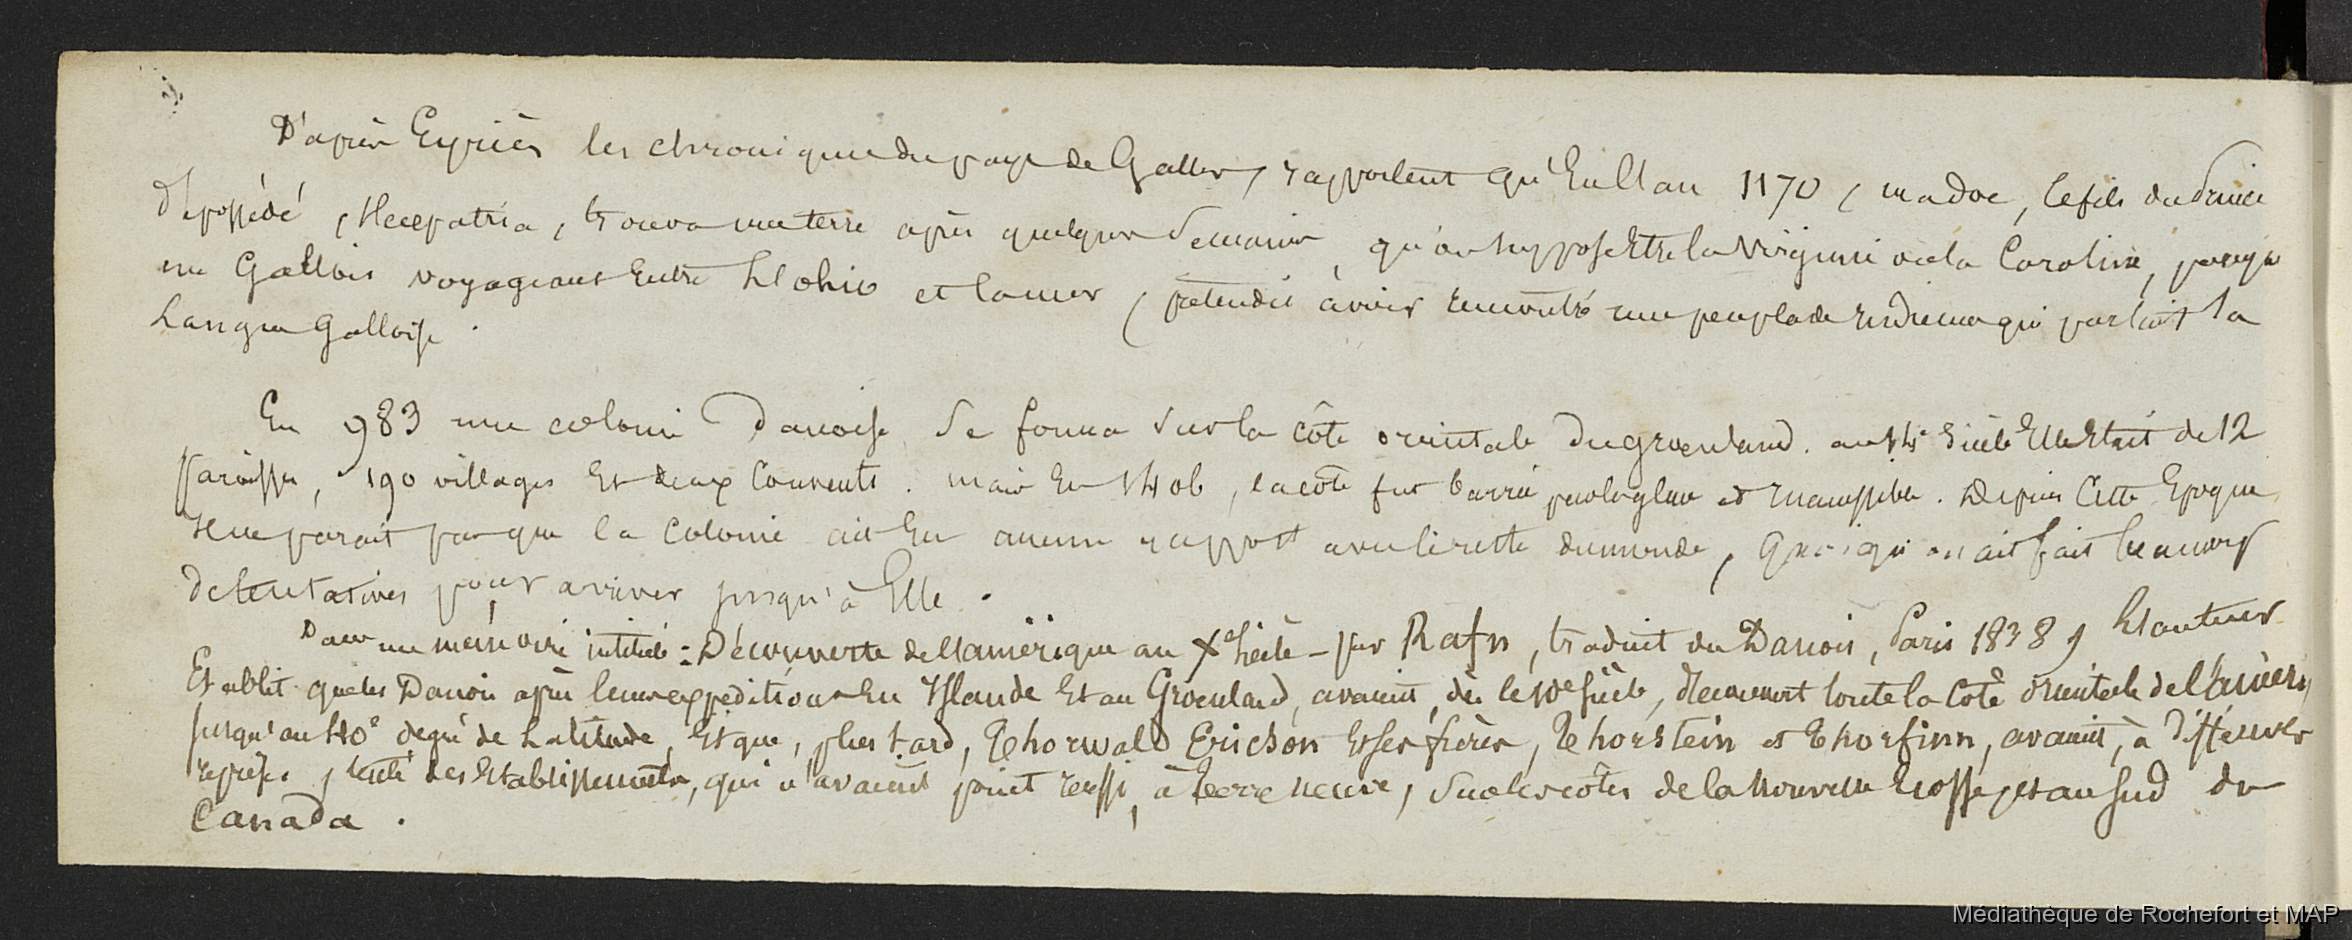 D'après Eyriès les chroniques du pays de Galles, rapportent qu'en l'an 1170, Madoc, le fils du Prince
dépossédé, s'expatria, trouva une terre après quelques semaines, qu'on suppose être la Virginie ou la Caroline, puisqu'
un Gallois voyageant entre l'ohio et la mer, prétendit avoir rencontré une peuplade indienne qui parlait la
Langue Galloise.
En 983 une colonie Danoise se forma sur la côte orientale du groenland. au 14e siècle Elle était de 12
Paroisses, 190 villages et deux Couvents. mais En 1406, la côte fut barrée par les glaces et inaccessible. Depuis Cette Epoque
il ne parait pas que la Colonie ait Eu aucun rapport avec le reste du monde, quoiqu'on ait fait beaucoup
de tentatives pour arriver jusqu'à Elle.
Dans un mémoire intitulé : Découverte de l'amérique au Xe siècle - par Rafn, traduit du Danois, Paris 1838, l'auteur
Etablit que les Danois après leurs expéditions En Islande Et au Groenland, avaient, dès le 10e siècle, découvert toute la Côte orientale de l'amériq
jusqu'au 40e degré de Latitude, Et que, plus tard, Thorwald Ericson et ses frères, Thorstein et Thorfinn, avaient, à différentes
reprises, tenté des Etablissements, qui n'avaient point réussi, à terre neuve, sur les côtes de la nouvelle Ecosse, et au sud du
Canada.
Médiathèque de Rochefort et MAP